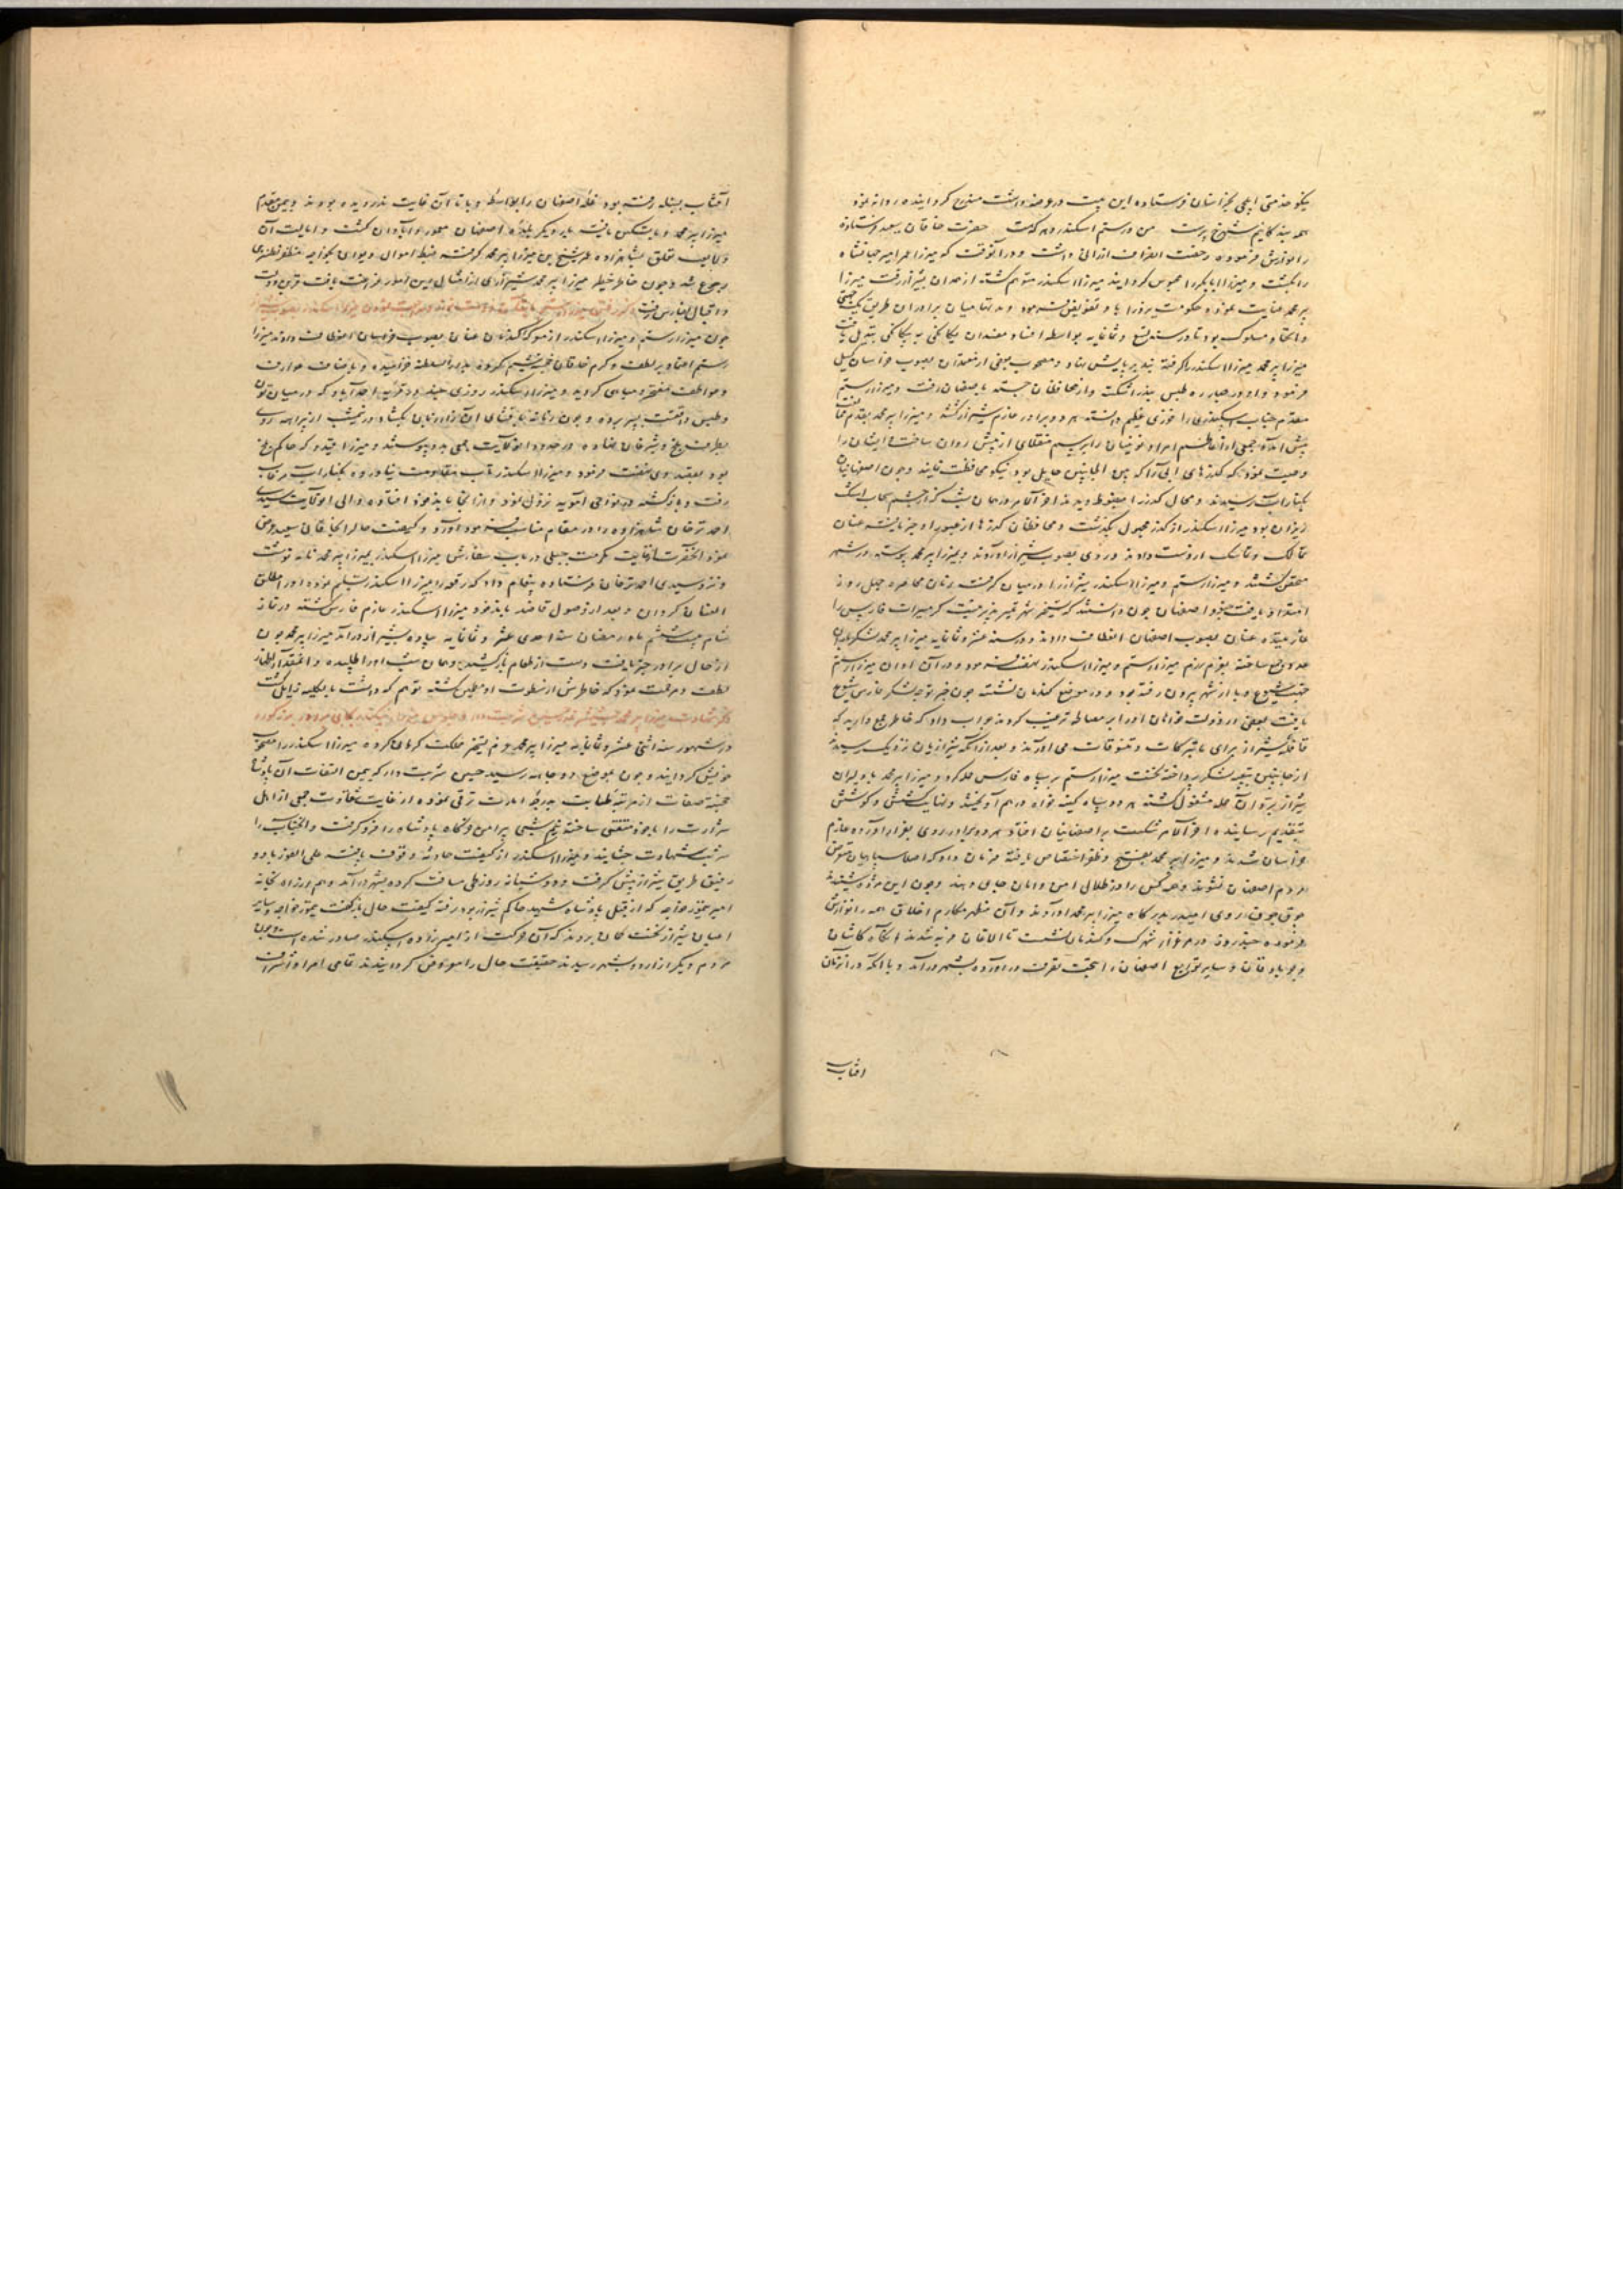 نیکو خدمتی ایلچی بخراسان فرستاده این بیت در عرضه داشت مندرج کردانیده روانه نمود
همه بندکانیم شهرخ پرست من و رستم اسکندر و هر که هست حضرت خاقان سعید فرستاده
را نوازش فرموده رخصت انصراف ارزانی داشت و در آنوقت که میرزا عمر امیر جهانشاه
را بکشت و میرزا ابابکر را محبوس کردانید میرزا اسکندر متوهم کشته از همدان بشیراز رفت میرزا
پیر محمد عنایت نموده حکومت یزد را باو تفویض فرمود و مدتها میان برادران طریق یکجهتی
و اتحاد مسلوک بود تا در سنه تسع و ثمانمایه بواسطه افساد مفسدان یکانکی به بیکانکی تبدیل یافت
میرزا پیر محمد میرزا اسکندر را کرفته بند بر پایش نهاد و مصحوب بعضی از معتمدان بصوب خراسان کسیل
فرمود و او در صحرا راه طبس بند را شکست و از محافظان جسته باصفهان رفت و میرزا رستم
مقدم جناب اسکندری را فوزی عظیم دانسته هر دو برادر عازم شیراز کشتند و میرزا پیر محمد بقدم ممانعت
پیش آمده جمعی از اعاظم امرا و نوئینان را برسم منقلای از پیش روان ساخت و ایشان را
وصیت نمود که کذرهای آبی را که بین الجانبین حایل بود نیکو محافظت نمایند و چون اصفهانیان
بکنار آب رسیدند و محال کذر را مضبوط دیدند آخر الامر در همان شب که از چشم سحاب اشک
ریزان بود میرزا اسکندر از کذر مجهول بکذشت و محافظان کذرها از عبور او خبر یافته عنان
تمالک و تماسک از دست دادند و روی بصوب شیراز آوردند و بمیرزا پیر محمد پیوسته در شهر
متحصن کشتند و میرزا رستم و میرزا اسکندر شیراز را در میان کرفت زمان محاصره چهل روز
امتداد یافت چون اصفهانیان دانستند که تسخیر شهر تیسیر پذیر نیست کرمسیرات فارس را
غارتیده عنان بصوب اصفهان انعطاف دادند و در سنه عشر و ثمانمایه میرزا پیر محمد لشکر
جمع ساخته بعزم رزم میرزا رستم و میرزا اسکندر نهضت فرمود و در آن اوان میرزا رستم
جهت شیوع وبا از شهر بیرون رفته بود و در موضع کندمان نشسته چون خبر توجه لشکر فارس شیوع
یافت بعضی از دولت خواهان او را بر مصالحه ترغیب کردند جواب داد که خاطر جمع دارید که
قافله شیراز برای ما تبرکات و تنسوقات می آورند و بعد از آنکه شیرازیان نزدیک رسیدند
از جانبین بتعبیه لشکر پرداخته نخست میرزا رستم بر سپاه فارس حمله کرد و میرزا پیر محمد با دلیران
شیراز بتدارک آن حمله مشغول کشته هر دو سپاه کینه خواه در هم آویختند و نهایت کشش و کوشش
بتقدیم رسانیده آخر الامر شکست بر اصفهانیان افتاد هر دو برادر روی بفرار آورده عازم
خراسان شدند و میرزا پیر محمد بفتح و ظفر اختصاص یافته فرمان داد که اصلا سپاهیان متعرض
مردم اصفهان نشوند و همه کس را در ظلال امن و امان جای دهند و چون این مژده شنیدند
جوق جوق روی امید بدرکاه میرزا پیر محمد آوردند و آن مظهر مکارم اخلاق همه را نوازش
فرموده چند روز در مرغزار شهرک و کندمان نشست تا آلاقان فربه شدند آنکاه کاشان
و جربادقان و سایر توابع اصفهان را بتحت تصرف درآورده بشهر درآمد و با آنکه در آنزمان
افتاب
آفتاب بسنبله رفته بود غله اصفهان را بواسطه وبا تا آن غایت ندرویده بودند و بیمن مقدم
میرزا پیر محمد وبا تسکین یافت بار دیکر بلده اصفهان معمور و آبادان کشت و ایالت آن
ولایت تعلق بشاهزاده عمر شیخ بن میرزا پیر محمد کرفت ضبط اموال و دیوان بخواجه مظفر نطنزی
رجوع شد و چون خاطر خطیر میرزا پیر محمد شیرازی از امثال این امور فراغت یافت قرین دولت
و اقبال بفارس رفت
چون میرزا رستم و میرزا اسکندر از معرکه کندمان عنان بصوب خراسان انعطاف دادند میرزا
رستم اعتماد بر لطف و کرم خاقان خورشید علم کرده بدار السلطنه خرامیده و باصناف عوارف
و عواطف مفتخر و مباهی کردید و میرزا اسکندر روزی چند در قریه احمدآباد که در میان تون
و طبس واقعست بسر برده
بطرف بلخ و شبرغان نهاده در حدود آن ولایت جمعی بدو پیوستند و میرزا قیدو که حاکم بلخ
بود بقصد وی نهضت فرمود و میرزا اسکندر تاب مقاومت نیاورده بکنار آب مرغاب
رفت و باز کشته در نواحی آمویه نزول نمود و از آنجا باندخود افتاده والی آن ولایت سیدی
احمد ترخان شاهزاده را در مقام مناسب فرود آورد و کیفیت حال را بخاقان سعید عرض
نمود آنحضرت از غایت مکرمت جبلی در باب سفارش میرزا اسکندر بمیرزا پیر محمد نامه نوشت
و نزد سیدی احمد ترخان فرستاده پیغام داد که رقعه را بمیرزا اسکندر تسلیم نموده او را مطلق
العنان کردان و بعد از وصول قاصد باندخود میرزا اسکندر عازم فارس کشته در نماز
شام بیست ششم ماه رمضان سنه احدی عشر و ثمانمایه پیاده بشیراز درآمد میرزا پیر محمد چون
از حال برادر خبر یافت دست از طعام باز کشید و همان شب او را طلبیده و آنمقدار اظهار
لطف و مرحمت نمود که خاطرش از سطوت او مطمئن کشته توهم که داشت بالکلیه زایل کشت
در شهور سنه اثنی عشر و ثمانمایه میرزا پیر محمد عزم تسخیر مملکت کرمان کرده میرزا اسکندر را مصحوب
خویش کردانید و چون بموضع دوچاهه رسید حسین شربت دار که بیمن التفات آن پادشاه
خجسته صفات از مرتبه طبابت بدرجه امارت ترقی نموده از غایت شقاوت جمعی از اهل
شرارت را با خود متفق ساخته نیم شبی پیرامن خرکاه پادشاه را فرو کرفت و آنجناب را
شربت شهادت چشانید و میرزا اسکندر از کیفیت حادثه وقوف یافته علی الفور با دو
رفیق طریق شیراز پیش کرفت و دو شبانه روز طی مسافت کرده بشهر درآمد و هم از راه بخانه
امیر تیمور خواجه که از قبل پادشاه شهید حاکم شیراز بود رفته کیفیت حال باز کفت تیمور خواجه و سایر
اعیان شیراز نخست کمان بردند که آن حرکت از امیرزاده اسکندر صادر شده است چون
مردم دیکر از اردو بشهر رسیدند حقیقت حال را معروض کردانیدند تمامی امرا و اشراف